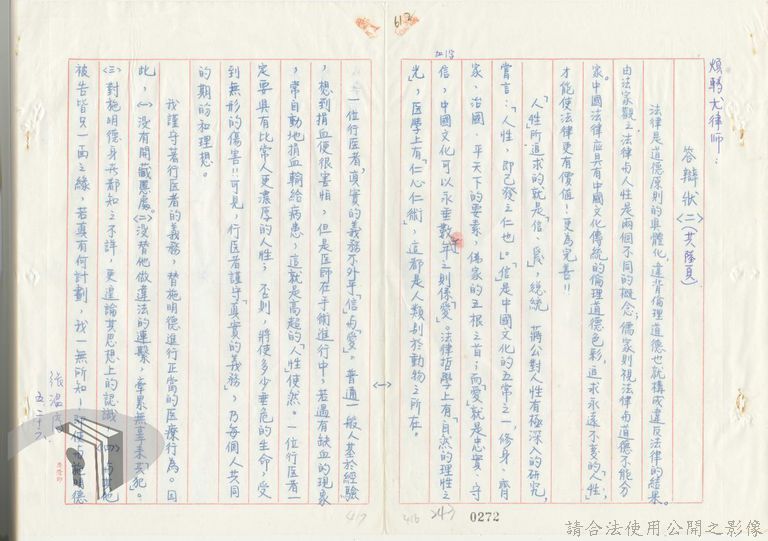 613
煩轉尤律師：
答辯狀(二)(共陸頁)
法律是道德原則的具體化,違背倫理道德也就構成違反法律的結果。
由法家觀之,法律與人性是兩個不同的概念；儒家則視法律與道德不能分
家。中國法律应具有中國文化傳統的倫理道德色彩,追求永遠不変的「人性」,
才能使法律更有價值！更為完善!!
「人性」所追求的就是「信、愛」,總統 蔣公對人性有極深入的研究,
嘗言：「人性,即已發之仁也」。「信」是中國文化的五常之一,修身、齊
家、治國、平天下的要素,儒家的五根之首；而「愛」就是忠實、守
信,中國文化可以永垂數千年之則係「愛」。法律哲學上有「自然的理性之
光」,医學上有「仁心仁術」,這都是人類别於動物之所在。
(一)
一位行医者,真實的義務不外乎「信」與「愛」。普通一般人基於經驗
,想到捐血便很害怕,但是医師在手術進行中,若遇有缺血的現象
,常自動地捐血輸給病患,這就是高超的「人性」使然。一位行医者一
定要具有比常人更濃厚的人性,否則,將使多少垂危的生命,受
到無形的傷害!!可見,行医者謹守「真實的義務」,乃每個人共同
的期盼和理想。
我謹守著行医者的義務,替施明德進行正當的医療行為。因
此,(一)没有開藏匿處。(二)没替他做違法的連繫,牽累無辜来「犯」。
(三)對施明德身形都知之不詳,更遑論其思想上的認識。(四)與其他
被告皆只一面之緣,若真有何計劃,我一無所知！
施明德
張溫鷹
五、二十六、
416
417
0272
請合法使用公開之影像